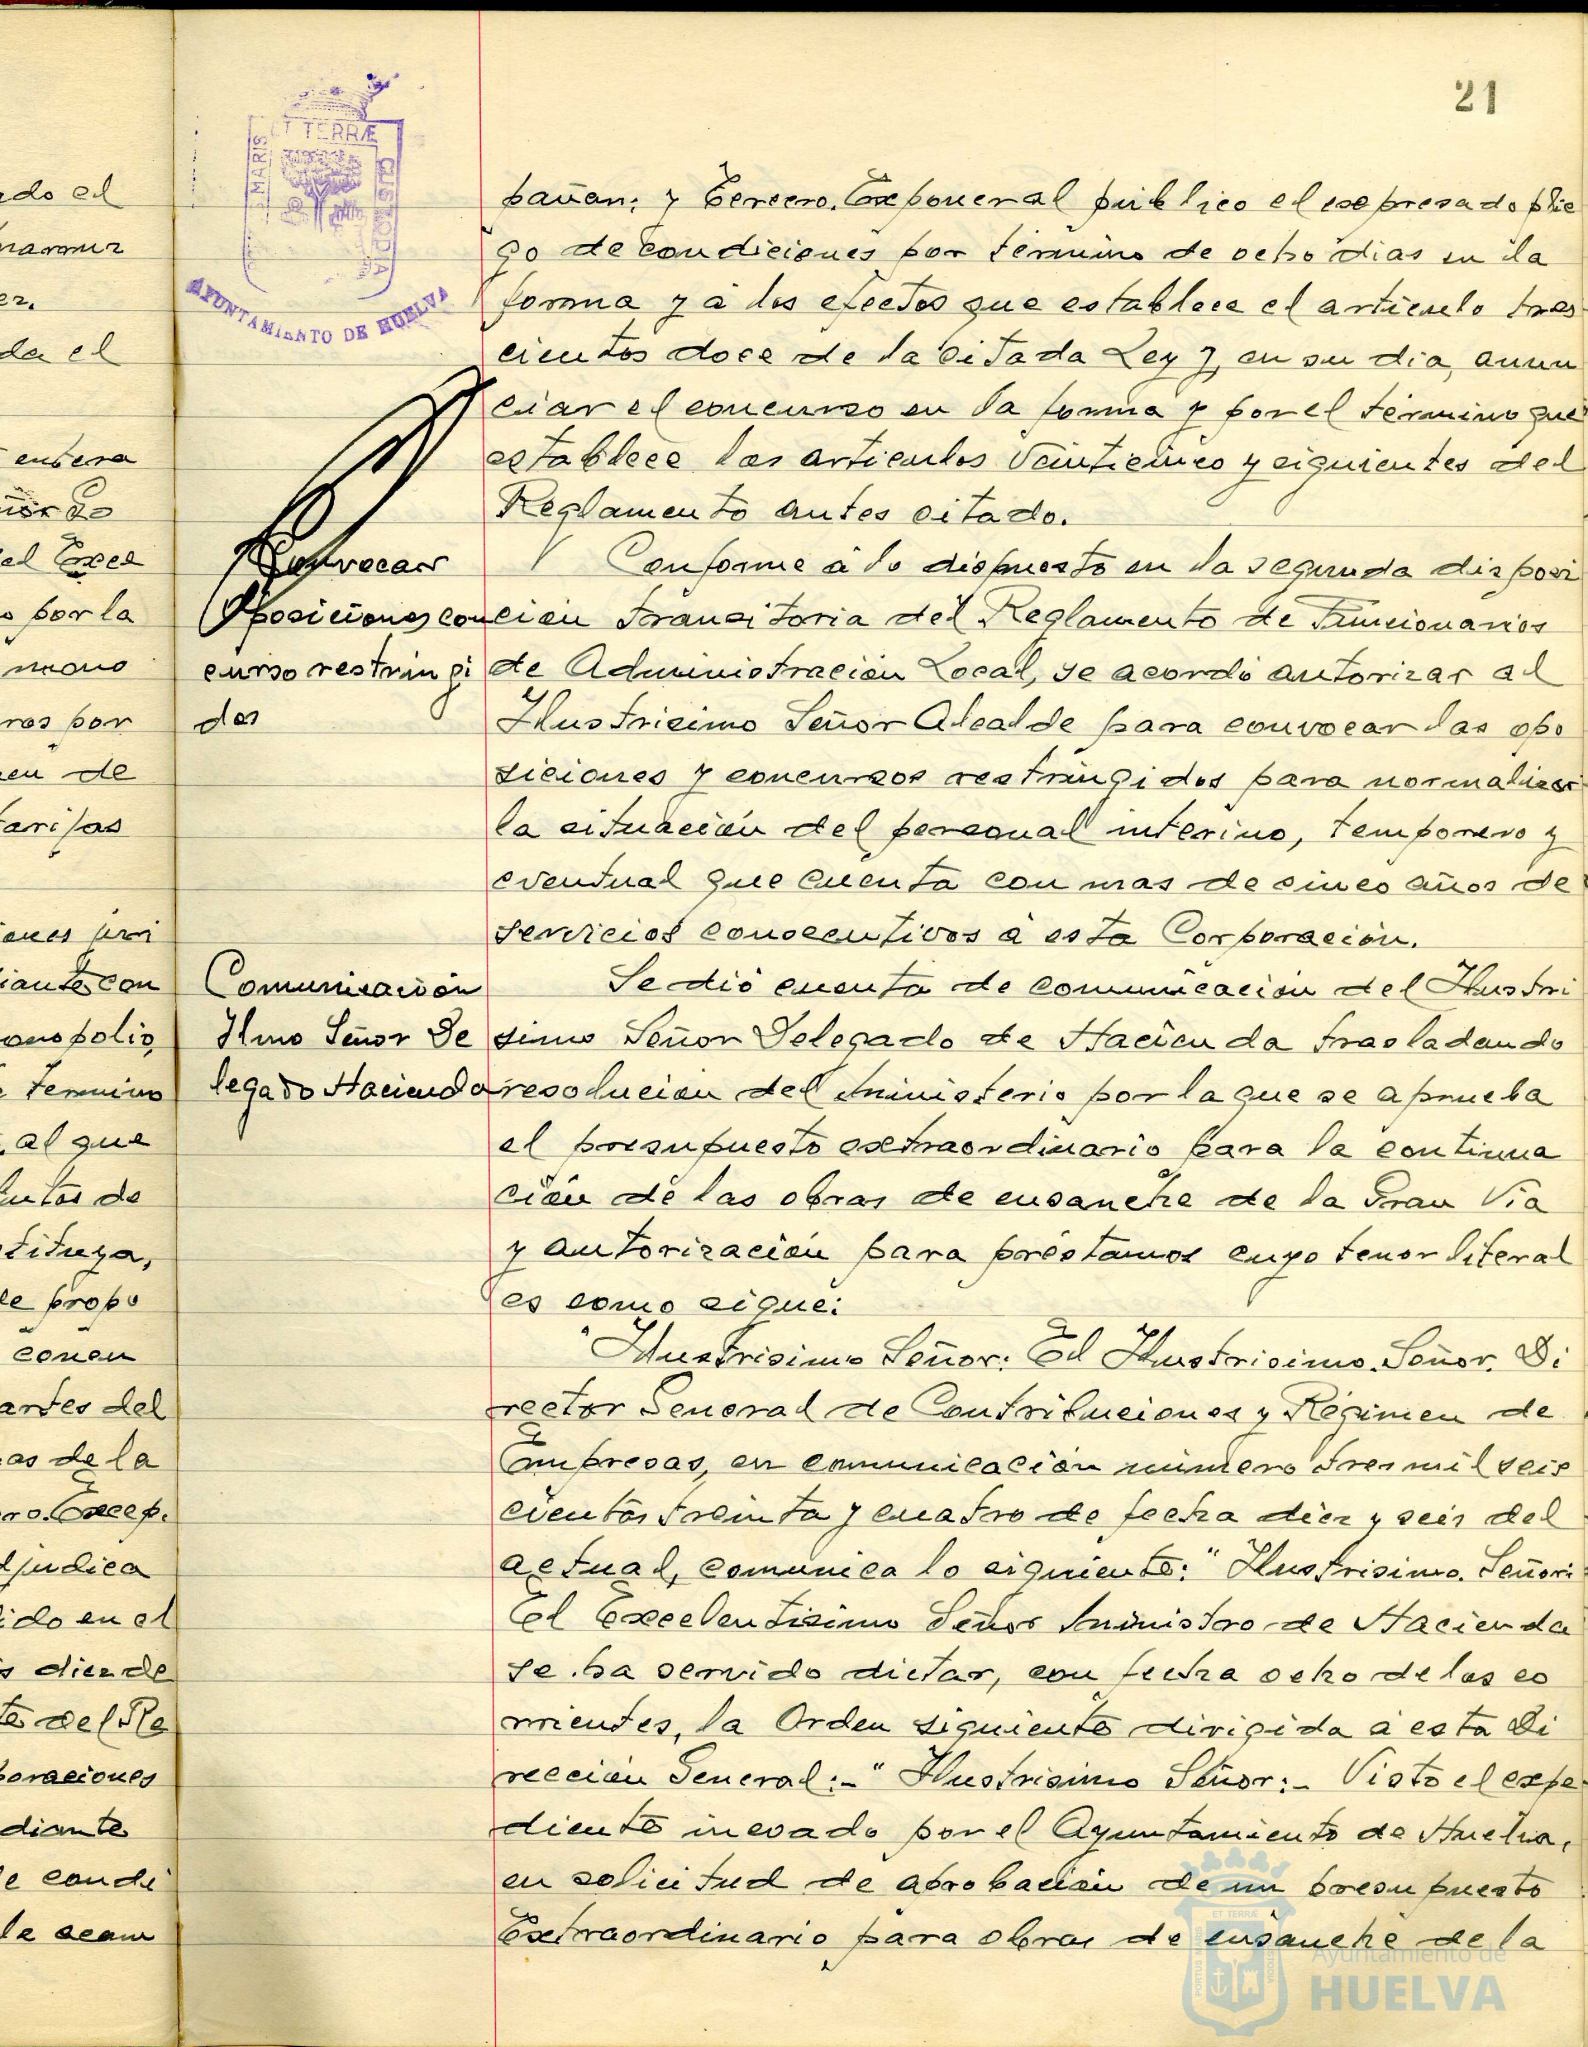 21
ET TERRÆ
MARIS
CUSTODIA
AYUNTAMIENTO DE HUELVA
do el
er.
da el
entera
el Exce
por la
mano
ras por
en de
tarifas
iante con
onopolio,
termino
al que
tituya,
de propo
concu
artes del
as de la
ro. Excep.
djudica
ido en el
diez de
te del Re
poraciones
diante
e condi
le acom
pañan; y Tercero. Exponer al público el expresado plie
go de condiciones por término de ocho dias en la
forma y á los efectos que establece el articulo tres
cientos doce de la citada Ley y, en su dia, anun
ciar el concurso en la forma y por el término que
establece los articulos veinticinco y siguientes del
Reglamento antes citado.
Convocar
Oposiciones con
curso restringi
dos
Conforme á lo dispuesto en la segunda disposi
ción transitoria del Reglamento de Funcionarios
de Administración Local, se acordó autorizar al
Ilustrisimo Señor Alcalde para convocar las opo
siciones y concursos restringidos para normalizar
la situación del personal interino, temporero y
eventual que cuenta con mas de cinco años de
servicios consecutivos á esta Corporación.
Comunicación
Ilmo Señor De
legado Hacienda
Se dió cuenta de comunicación del Ilustri
simo Señor Delegado de Hacienda trasladando
resolución del Ministerio por la que se aprueba
el presupuesto extraordinario para la continua
ción de las obras de ensanche de la Gran Via
y autorización para préstamos cuyo tenor literal
es como sigue:
"Ilustrisimo Señor: El Ilustrisimo. Señor. Di
rector General de Contribuciones y Régimen de
Empresas, en comunicación número tres mil seis
cientos treinta y cuatro de fecha diez y seis del
actual, comunica lo siguiente: "Ilustrisimo. Señor:
El Excelentisimo Señor Ministro de Hacienda
se ha servido dictar, con fecha ocho de los co
rrientes, la Orden siguiente dirigida á esta Di
rección General:-" Ilustrisimo Señor:- Visto el expe
diente incoado por el Ayuntamiento de Huelva,
en solicitud de aprobación de un presupuesto
Extraordinario para obras de ensanche de la
Ayuntamiento de
HUELVA